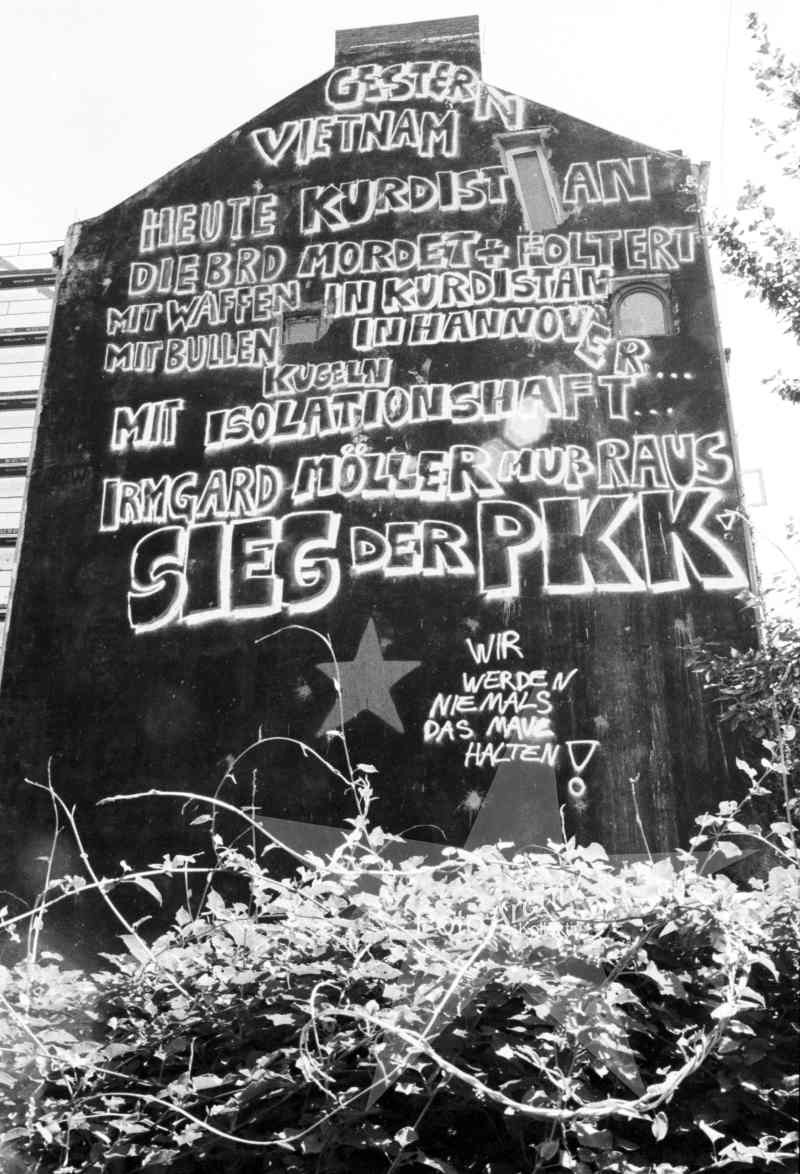 GESTERN
VIETNAM
HEUTE KURDISTAN
DIE BRD MORDET + FOLTERT
MIT WAFFEN IN KURDISTAN
MIT BULLEN IN HANNOVER....
KUGELN
MIT ISOLATIONSHAFT...
IRMGARD MÖLLER MUß RAUS
SIEG DER PKK!
WIR
WERDEN
NIEMALS
DAS MAUL
HALTEN!